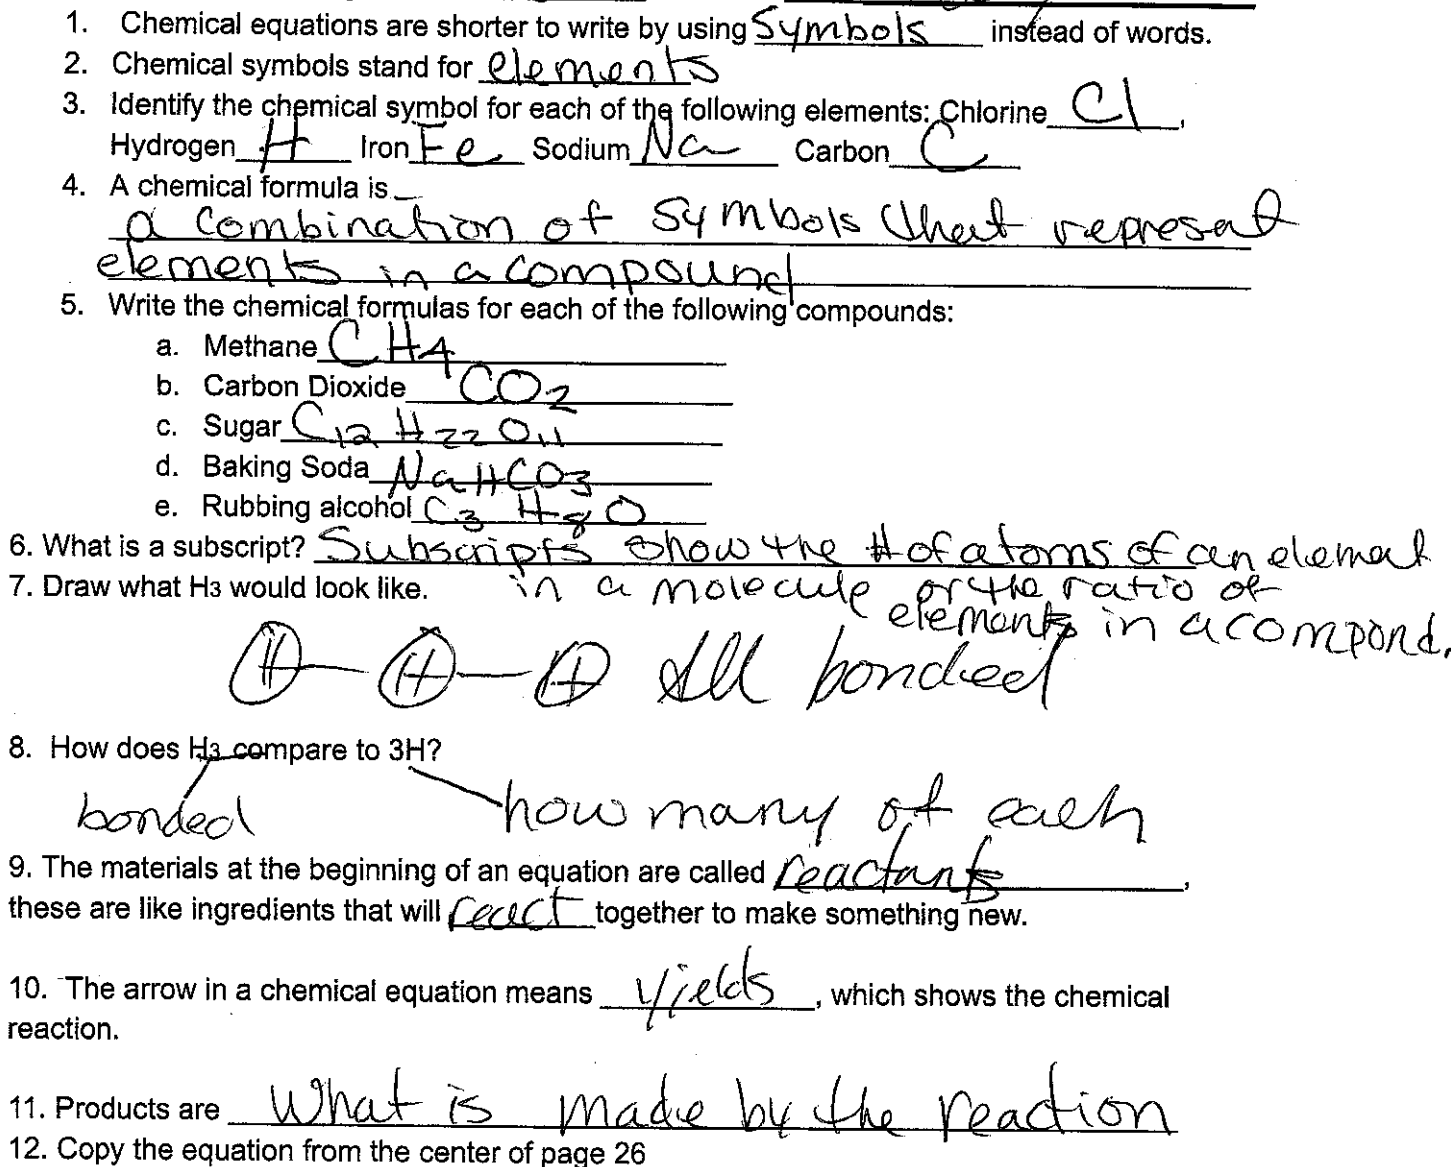 1. Chemical equations are shorter to write by using Symbols instead of words.
2. Chemical symbols stand for elements
3. Identify the chemical symbol for each of the following elements: Chlorine Cl,
Hydrogen H Iron Fe Sodium Na Carbon C
4. A chemical formula is
a combination of symbols that represent
elements in a compound
5. Write the chemical formulas for each of the following compounds:
a. Methane CH4
b. Carbon Dioxide CO2
c. Sugar C12 H22 O11
d. Baking Soda NaHCO3
e. Rubbing alcohol C3 H8 O
6. What is a subscript? Subscripts show the # of atoms of an element
7. Draw what H3 would look like. in a molecule or the ratio of
elements in a compond.
H H H All bonded
8. How does H3 compare to 3H?
bonded how many of each
9. The materials at the beginning of an equation are called reactants,
these are like ingredients that will react together to make something new.
10. The arrow in a chemical equation means yields, which shows the chemical
reaction.
11. Products are What is made by the reaction
12. Copy the equation from the center of page 26